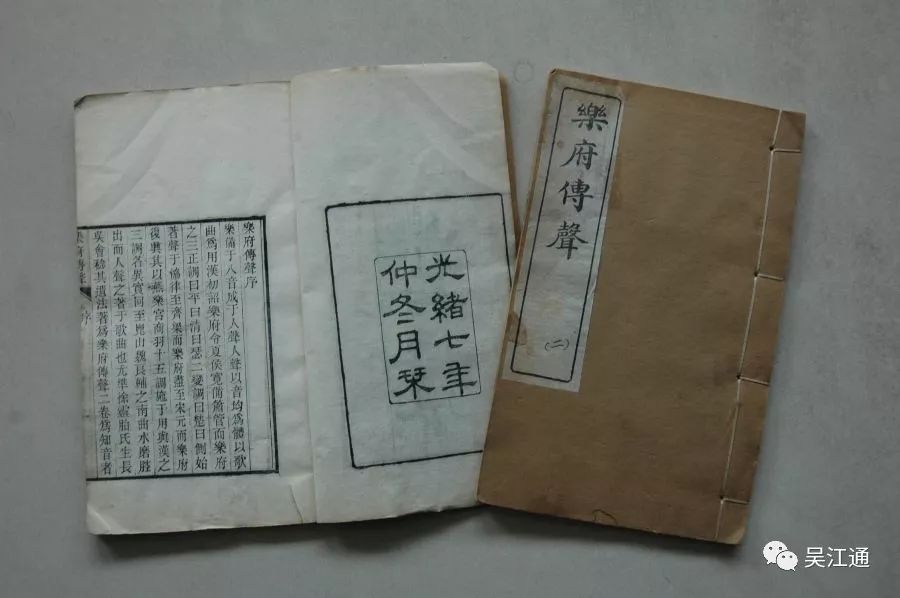 樂府傳聲
(二)
光緒七年
仲冬月栞
樂府傳聲序
樂備于八音成于人聲人聲以音均為體以歌
曲為用漢初詔樂府令夏侯寬備簫管而樂府
之三正調曰平曰清曰瑟二變調曰楚曰側始
著聲于協律至齊梁而樂府盡至宋元而樂府
復興其以燕樂宮商羽十五調施于用與漢之
三調各異實同至崑山魏良輔之南曲水磨勝
出而人聲之著于歌曲也尤準徐靈胎氏生長
吳會稽其遺法著為樂府傳聲二卷為知音者
樂府傳聲
序
吴江通